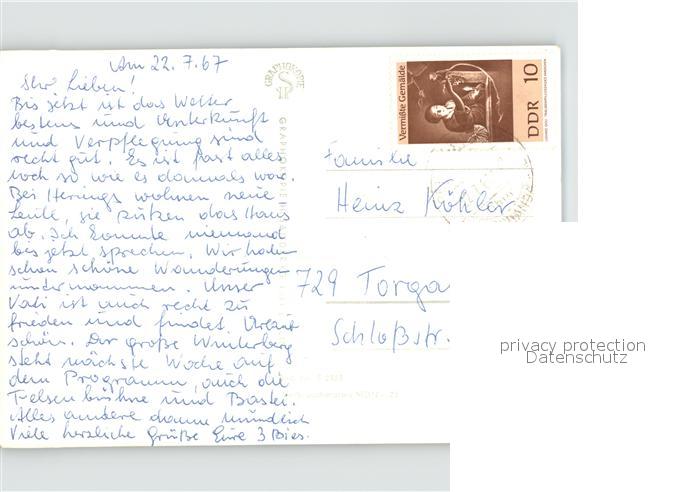 Am 22.7.67
Ihr Lieben!
Bis jetzt ist das Wetter
bestens und Unterkunft
und Verpflegung sind
recht gut. Es ist fast alles
noch so wie es damals war.
Bei Herings wohnen neue
Leute, sie putzen das Haus
ab. Ich konnte niemand
bis jetzt sprechen. Wir haben
schon schöne Wanderungen
unternommen. Unser
Vati ist auch recht zu
frieden und findet
schön. Der große Winterberg
steht nächste Woche auf
dem Programm, auch die
Felsenbühne und Bastei.
Alles andere dann mündlich
Viele herzliche Grüße Eure 3 Bies.
GRAPHOKOPIE
Vermißte Gemälde
DDR 10
Familie
Heinz Köhler
729 Torga
Schloßstr.
privacy protection
Datenschutz